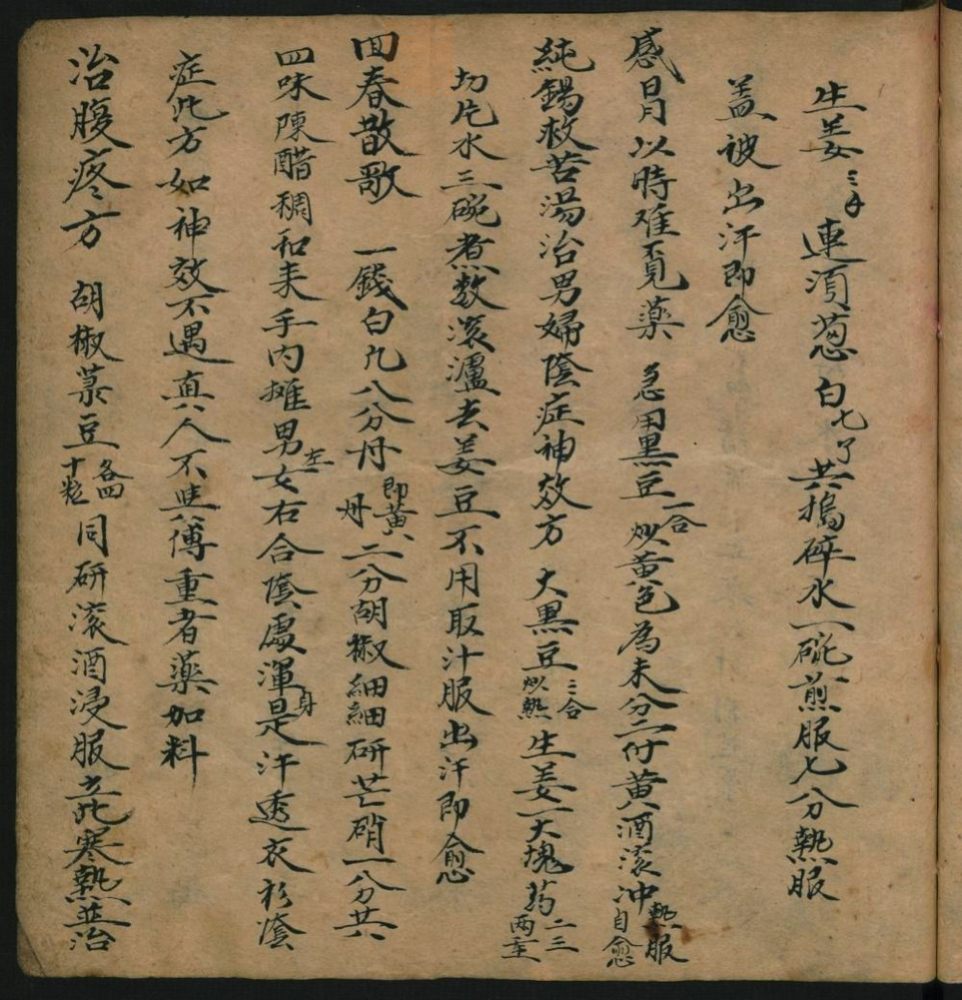 生姜三片連須葱白七个共搗碎水一碗煎服七分熱服
盖被出汗即愈
感日月以時难覓藥 急用黑豆一合炒黄色為末分二付黄酒滚冲熱服自愈
純錫救苦湯治男婦陰症神效方 大黑豆三合炒熱生姜一大塊葯二三両重
切片水三碗煮数滚瀘去姜豆不用取汁服出汗即愈
回春散歌 一錢白凡八分丹即黄丹二分胡椒細細研芒硝一分共
四味陳醋稠和来手内摊男左女右合陰處渾身是汗透衣衫陰
症此方如神效不遇真人不軽傳重者藥加料
治腹疼方 胡椒菉豆各四十粒同研滚酒浸服立止寒熱並治